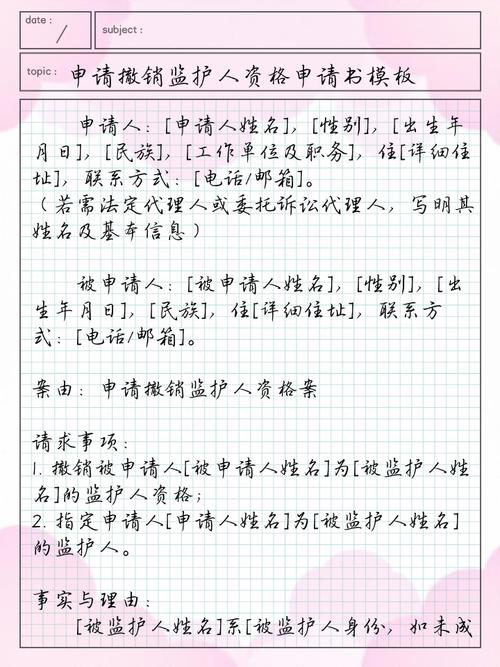 date :
subject :
topic : 申请撤销监护人资格申请书模板
申请人：[申请人姓名]，[性别]，[出生年
月日]，[民族]，[工作单位及职务]，住[详细住
址]，联系方式：[电话/邮箱]。
（若需法定代理人或委托诉讼代理人，写明其
姓名及基本信息）
被申请人：[被申请人姓名]，[性别]，[出
生年月日]，[民族]，住[详细住址]，联系方
式：[电话/邮箱]。
案由：申请撤销监护人资格案
请求事项：
1. 撤销被申请人[被申请人姓名]为[被监护人姓
名]的监护人资格；
2. 指定申请人[申请人姓名]为[被监护人姓名]
的监护人。
事实与理由：
[被监护人姓名]系[被监护人身份，如未成